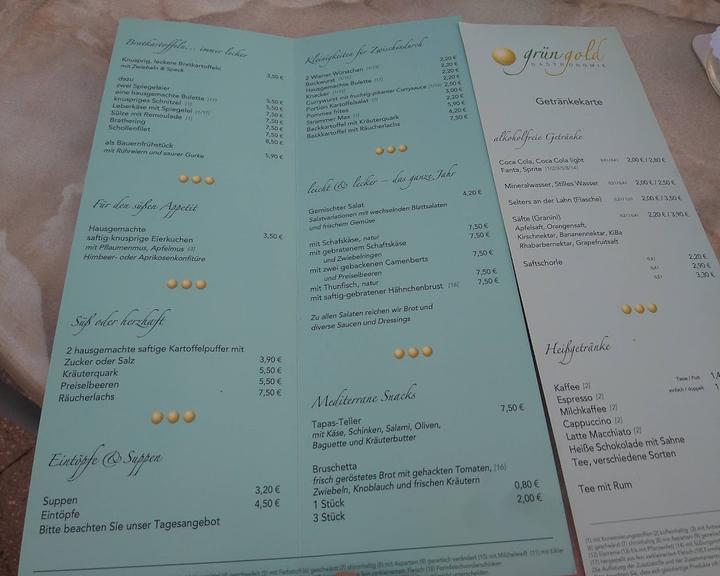 Bratkartoffeln... immer lecker
Knusprig, leckere Bratkartoffeln
mit Zwiebeln & Speck 3,50 €
dazu
zwei Spiegeleier
eine hausgemachte Bulette
knuspriges Schnitzel
Leberkäse mit Spiegelei
Sülze mit Remoulade
Brathering
Schollenfilet
als Bauernfrühstück
mit Rühreiern und saurer Gurke 5,90 €
Für den süßen Appetit
Hausgemachte
saftig-knusprige Eierkuchen 3,50 €
mit Pflaumenmus, Apfelmus [3]
Himbeer- oder Aprikosenkonfitüre
Süß oder herzhaft
2 hausgemachte saftige Kartoffelpuffer mit
Zucker oder Salz 3,90 €
Kräuterquark 5,50 €
Preiselbeeren 5,50 €
Räucherlachs 7,50 €
Eintöpfe & Suppen
Suppen 3,20 €
Eintöpfe 4,50 €
Bitte beachten Sie unser Tagesangebot
Kleinigkeiten für Zwischendurch
2 Wiener Würstchen 2,20 €
Bockwurst 2,20 €
Hausgemachte Bulette
Knacker
Currywurst mit fruchtig-pikanter Currysauce
Portion Kartoffelsalat
Pommes frites 2,20 €
Strammer Max 5,90 €
Backkartoffel mit Kräuterquark 4,20 €
Backkartoffel mit Räucherlachs 7,50 €
leicht & lecker – das ganze Jahr
Gemischter Salat 4,20 €
Salatvariationen mit wechselnden Blattsalaten
und frischem Gemüse
mit Schafskäse, natur 7,50 €
mit gebratenem Schafskäse 7,50 €
und Zwiebelringen
mit zwei gebackenen Camenberts 7,50 €
und Preiselbeeren
mit Thunfisch, natur 7,50 €
mit saftig-gebratener Hähnchenbrust [16] 7,50 €
Zu allen Salaten reichen wir Brot und
diverse Saucen und Dressings
Mediterrane Snacks
Tapas-Teller 7,50 €
mit Käse, Schinken, Salami, Oliven,
Baguette und Kräuterbutter
Bruschetta
frisch geröstetes Brot mit gehackten Tomaten, [16]
Zwiebeln, Knoblauch und frischen Kräutern
1 Stück 0,80 €
3 Stück 2,00 €
grüngold
GASTRONOMIE
Getränkekarte
alkoholfreie Getränke
Coca Cola, Coca Cola light 2,00 € / 2,80 €
Fanta, Sprite
Mineralwasser, Stilles Wasser 2,00 € / 2,50 €
Selters an der Lahn (Flasche) 2,00 € / 3,50 €
Säfte (Granini) 2,20 € / 3,90 €
Apfelsaft, Orangensaft,
Kirschnektar, Bananennektar, KiBa
Rhabarbernektar, Grapefruitsaft
Saftschorle 2,20 €
2,90 €
3,30 €
Heißgetränke
Tasse / Pott
Kaffee [2]
einfach / doppelt
Espresso [2]
Milchkaffee [2]
Cappuccino [2]
Latte Macchiato [2]
Heiße Schokolade mit Sahne
Tee, verschiedene Sorten
Tee mit Rum